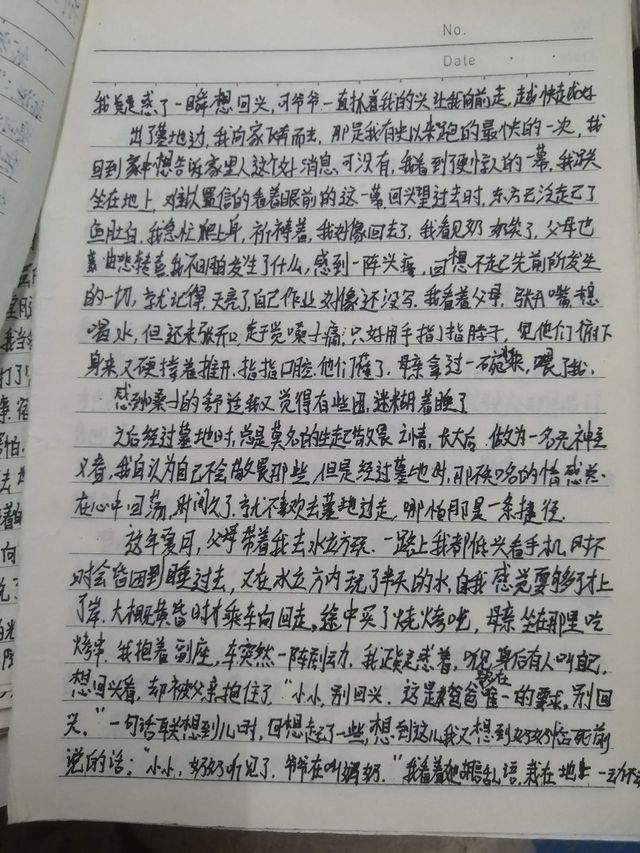 No.
Date
我疑惑了一瞬想回头,可爷爷一直抓着我的头让我向前走,越快越好
出了墓地边,我向家飞奔而去,那是我有史以来跑的最快的一次,我
回到家中想告诉家里人这个好消息,可没有,我看到了更惊人的一幕,我
坐在地上,难以置信的看着眼前的这一幕,回头望过去时,东方已泛起了
鱼肚白,我急忙爬上身,祈祷着,我好像回去了,我看见奶奶笑了,父母也
由悲转喜我不明白发生了什么,感到一阵头疼,回想不起先前所发生
的一切,就记得,天亮了,自己作业好像还没写,我看着父母,张开嘴,想
喝水,但还未张开口,就觉嗓子痛,只好用手指了指脖子,见他们俯下
身来又硬撑着推开,指指口腔,他们懂了,母亲拿过一碗,喂了我,
感到嗓子的舒适我又觉得有些困,迷糊着睡了
之后经过墓地时,总是莫名的生起敬畏之情,长大后,做为一名无神主
义者,我自认为自己不会敬畏那些,但是经过墓地时,那不明的情感总
在心中回荡,时间久了,就不喜欢去墓地过走,哪怕那是一条捷径.
这年夏日,父母带着我去水立方玩.一路上我都低头看手机,时不
时会因困到睡过去,又在水立方内玩了半天的水,自我感觉要够了才上
了岸.大概黄昏时才乘车向回走。途中买了烧烤吃,母亲坐在那里吃
烤串,我抱着副座,车突然一阵剧动,我正疑惑着,听见身后有人叫自己,
想回头看,却被父亲抱住了“小小,别回头.这是爸爸现在唯一的要求,别回
头。”一句话联想到儿时,回想起了一些,想到这儿我又想到奶奶临死前
说的话:“小小,奶奶听见了,爷爷在叫奶奶.”我看着她胡言乱语,我在地上一动不动